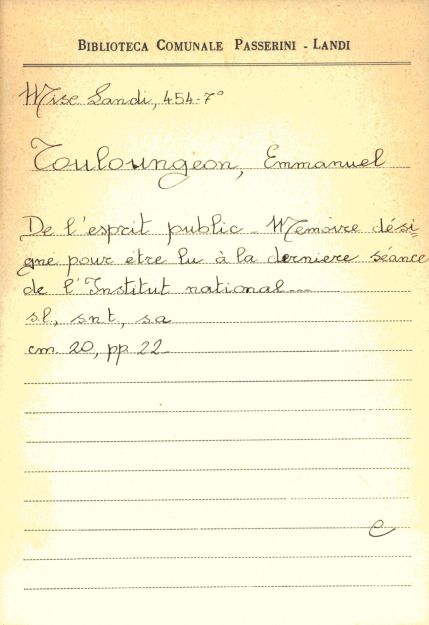 BIBLIOTECA COMUNALE PASSERINI - LANDI
Misc Landi, 454-7°
Touloungeon, Emmanuel
De l'esprit public - Memoire dési-
gne pour etre lu à la derniere séance
de l'Institut national...
s.l, s.n.t, s.a
cm. 20, pp 22
e